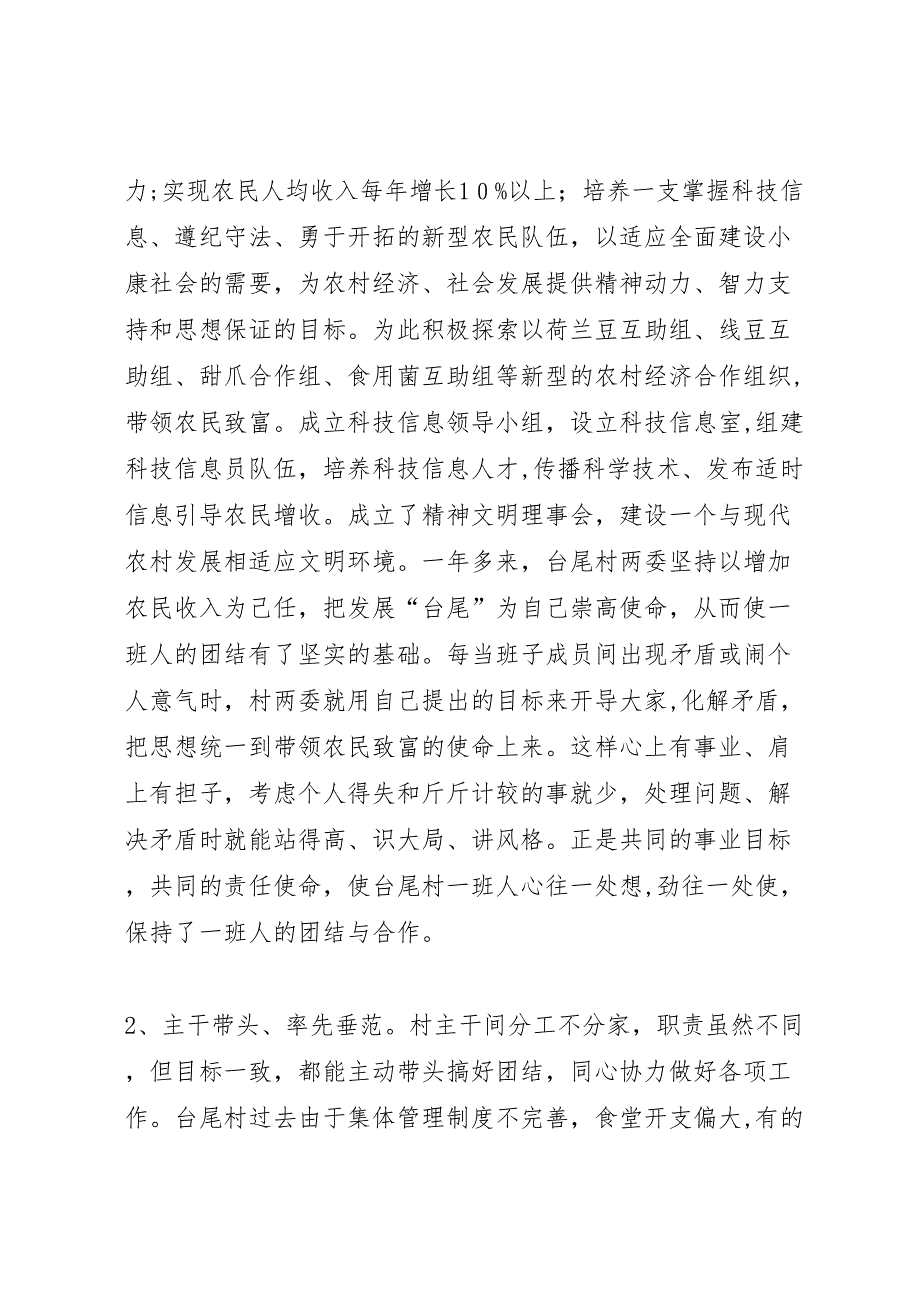 力;实现农民人均收入每年增长10%以上；培养一支掌握科技信
息、遵纪守法、勇于开拓的新型农民队伍，以适应全面建设小
康社会的需要，为农村经济、社会发展提供精神动力、智力支
持和思想保证的目标。为此积极探索以荷兰豆互助组、线豆互
助组、甜爪合作组、食用菌互助组等新型的农村经济合作组织,
带领农民致富。成立科技信息领导小组，设立科技信息室,组建
科技信息员队伍，培养科技信息人才,传播科学技术、发布适时
信息引导农民增收。成立了精神文明理事会，建设一个与现代
农村发展相适应文明环境。一年多来，台尾村两委坚持以增加
农民收入为己任，把发展“台尾”为自己崇高使命，从而使一
班人的团结有了坚实的基础。每当班子成员间出现矛盾或闹个
人意气时，村两委就用自己提出的目标来开导大家,化解矛盾，
把思想统一到带领农民致富的使命上来。这样心上有事业、肩
上有担子，考虑个人得失和斤斤计较的事就少，处理问题、解
决矛盾时就能站得高、识大局、讲风格。正是共同的事业目标
，共同的责任使命，使台尾村一班人心往一处想,劲往一处使，
保持了一班人的团结与合作。
2、主干带头、率先垂范。村主干间分工不分家，职责虽然不同
，但目标一致，都能主动带头搞好团结，同心协力做好各项工
作。台尾村过去由于集体管理制度不完善，食堂开支偏大,有的